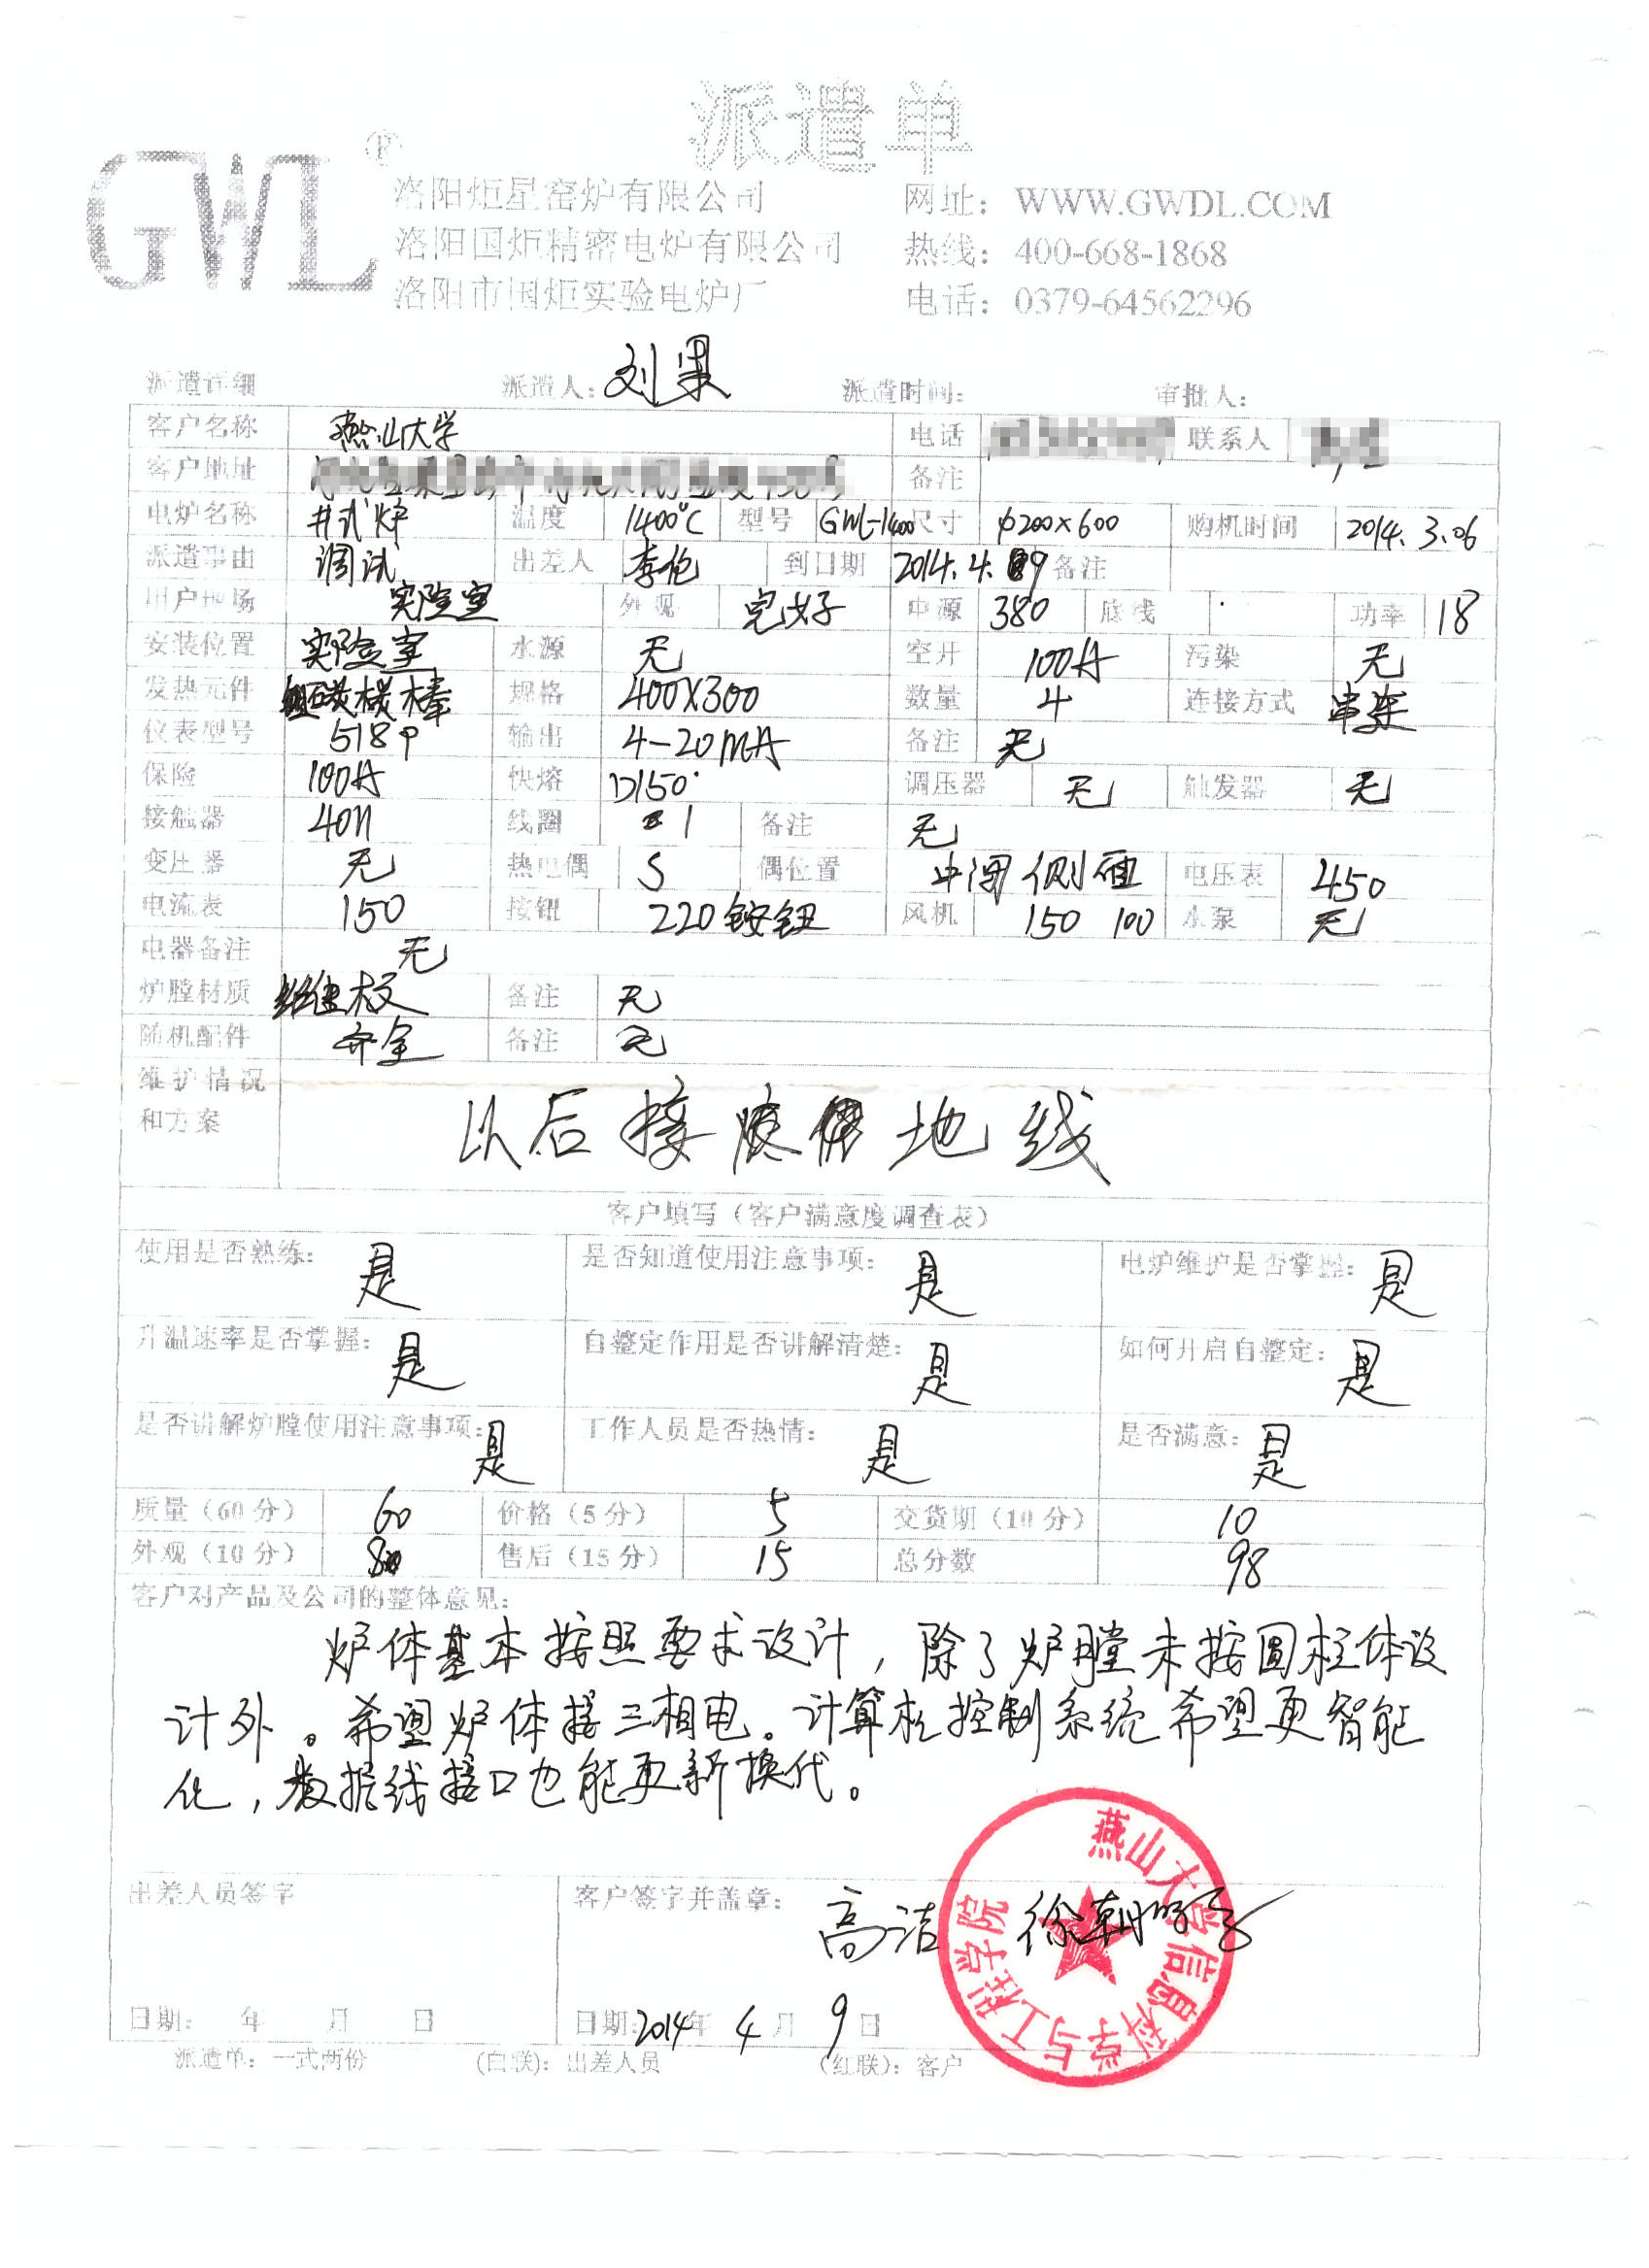 派遣单
GWL®
洛阳炬星窑炉有限公司 网址：WWW.GWDL.COM
洛阳国炬精密电炉有限公司 热线：400-668-1868
洛阳市国炬实验电炉厂 电话：0379-64562296
派遣详细 派遣人：刘果 派遣时间： 审批人：
客户名称 燕山大学 电话 联系人
客户地址 备注
电炉名称 井式炉 温度 1400℃ 型号 GWL-1400 尺寸 φ200×600 购机时间 2014.3.06
派遣事由 调试 出差人 李伦 到日期 2014.4.9 备注
用户现场 实验室 外观 完好 电源 380 底线 功率 18
安装位置 实验室 水源 无 空开 100A 污染 无
发热元件 硅碳棒 规格 400X300 数量 4 连接方式 串连
仪表型号 518P 输出 4-20MA 备注 无
保险 100A 快熔 D150 调压器 无 触发器 无
接触器 4011 线圈 1 备注 无
变压器 无 热电偶 S 偶位置 中间侧面 电压表 450
电流表 150 按钮 220铵钮 风机 150 100 水泵 无
电器备注 无
炉膛材质 纤维板 备注 无
随机配件 齐全 备注 无
维护情况
和方案 以后接 地线
客户填写（客户满意度调查表）
使用是否熟练：是 是否知道使用注意事项：是 电炉维护是否掌握：是
升温速率是否掌握：是 自整定作用是否讲解清楚：是 如何开启自整定：是
是否讲解炉膛使用注意事项：是 工作人员是否热情：是 是否满意：是
质量（60分） 60 价格（5分） 5 交货期（10分） 10
外观（10分） 8 售后（15分） 15 总分数 98
客户对产品及公司的整体意见：
炉体基本按照要求设计，除了炉膛未按圆柱体设
计外。希望炉体接三相电。计算机控制系统希望更智能
化，数据线接口也能更新换代。
出差人员签字 客户签字并盖章：高洁 徐朝
燕山大学信息科学与工程学院
日期： 年 月 日 日期：2014年 4月 9日
派遣单：一式两份 （白联）：出差人员 （红联）：客户